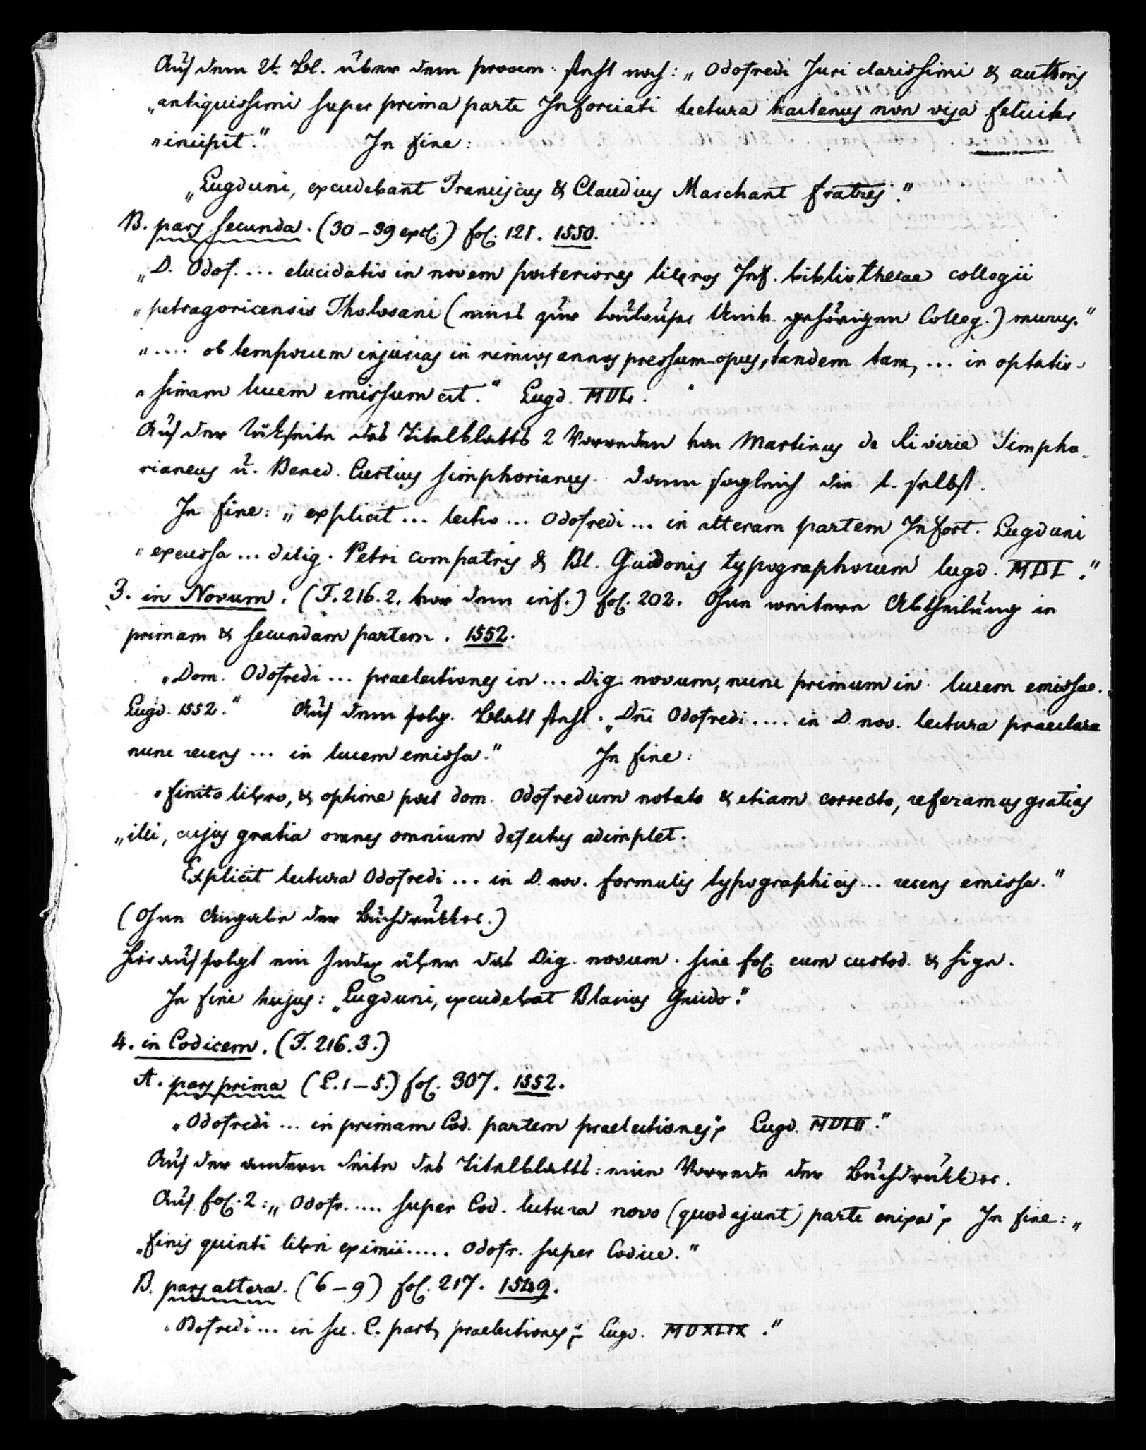 Auf dem 2t. Bl. über dem prooem. steht noch: „Odofredi Juri clarissimi & authoris
„antiquissimi super prima parte Inforciati lectura hactenus non visa feliciter
„incipit." In fine:
„Lugduni, excudebant Franciscus & Claudius Marchant fratres."
B. pars secunda. (30–39 expl.) fol. 121. 1550.
„D. Odof.... elucidatio in novem posteriores libros Inf. bibliothecae collegii
„petragoricensis Tholosani (eines zur Toulouser Univ. gehörigen Colleg.) munus."
„.... ob temporum injurias in nimios annos pressum opus, tandem tam, ... in optatis-
„simam lucem emissum est." Lugd. MDL.
Auf der Rükseite des Titelblatts 2 Vorreden von Martinus de Simpho-
rianeus u. Bened. Curtius simphorianus. Dann sogleich die l. selbst.
In fine: „explicit ... lectio ... Odofredi ... in alteram partem Infort. Lugduni
„excussa ... dilig. Petri compatris & Bl. Guidonis typographorum lugd. MDL."
3. in Novum. (F. 216. 2. vor dem inf.) fol. 202. Ohne weitere Abtheilung in
primam & secundam partem. 1552.
„Dom. Odofredi ... praelectiones in ... Dig. novum, nunc primum in lucem emissae.
Lugd. 1552." Auf dem folg. Blatt steht. „Dni Odofredi .... in D. nov. lectura praeclara
nunc recens ... in lucem emissa." In fine:
„finito libro, & optime per dom. Odofredum notato & etiam correcto, referamus gratias
„illi, cujus gratia omnes omnium defectus adimplet.
Explicit lectura Odofredi ... in D. nov. formulis typographicis ... recens emissa."
(Ohne Angabe der Buchdrukker.)
Hierauf folgt ein Index über das Dig. novum. sine fol. cum custod. & sign.
In fine hujus: „Lugduni, excudebat Blasius Guido."
4. in Codicem. (F. 216. 3.)
A. pars prima (L. 1–5.) fol. 307. 1552.
„Odofredi ... in primam Cod. partem praelectiones; Lugd. MDLII."
Auf der andern Seite des Titelblatts: eine Vorrede der Buchdrukker.
Auf fol. 2: „Odofr..... super Cod. lectura novo (quod ajunt) parte enixa; In fine: „
„finis quinti libri eximii ..... Odofr. super Codice."
B. pars altera. (6–9) fol. 217. 1549.
„Odofredi ... in sec. C. part. praelectiones; Lugd. MDXLIX."